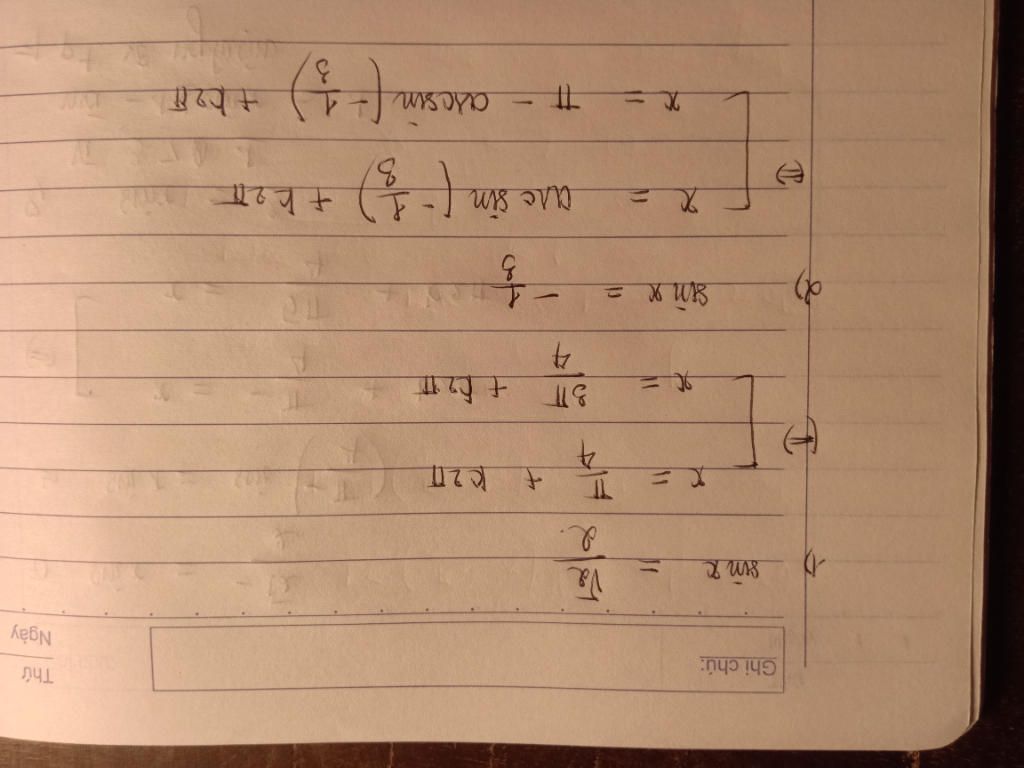 Thứ
Ngày
Ghi chú:
1) sin x = √2/2
(⇒) [ x = π/4 + k2π
x = 3π/4 + k2π
2) sin x = -1/3
⇔) [ x = arcsin (-1/3) + k2π
x = π - arcsin (-1/3) + k2π